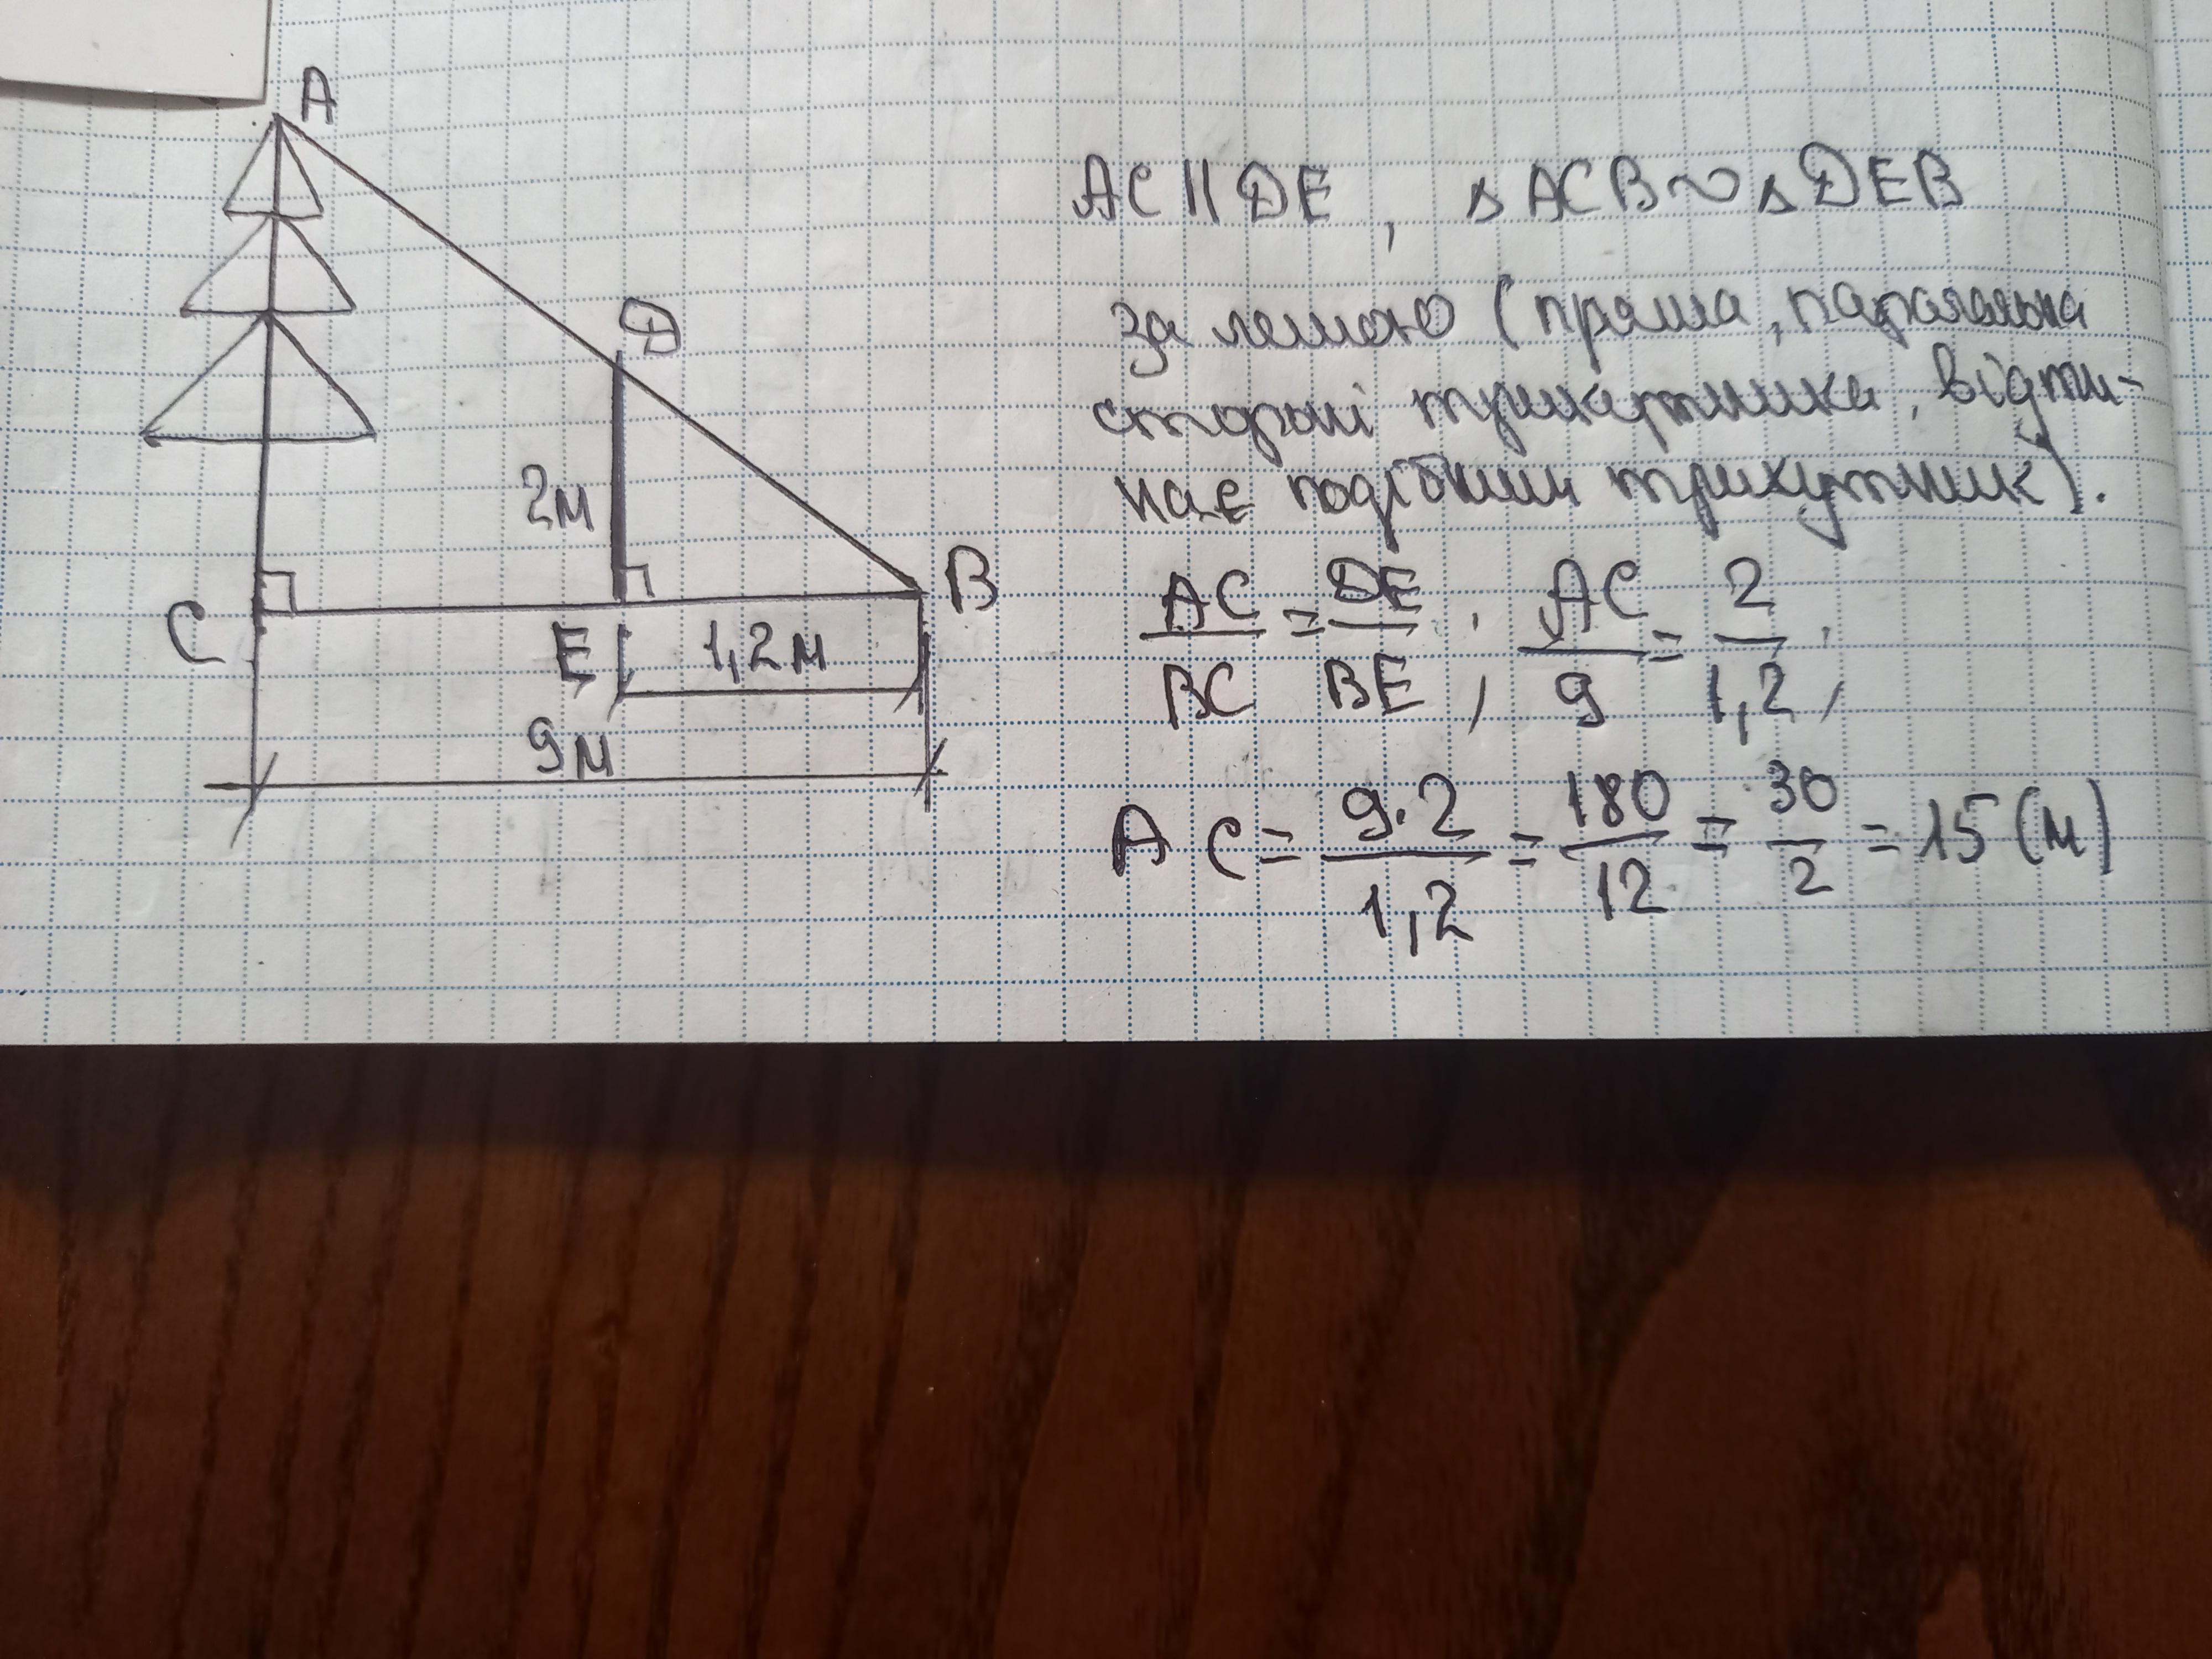 A
D
2м
C
E
1,2м
B
9м
AC || DE, △ACB ∾ △DEB
за лемою (пряма, паралельна
стороні трикутника, відти-
нає подібний трикутник).
AC/BC = DE/BE; AC/9 = 2/1,2;
AC = 9·2/1,2 = 180/12 = 30/2 = 15 (м)